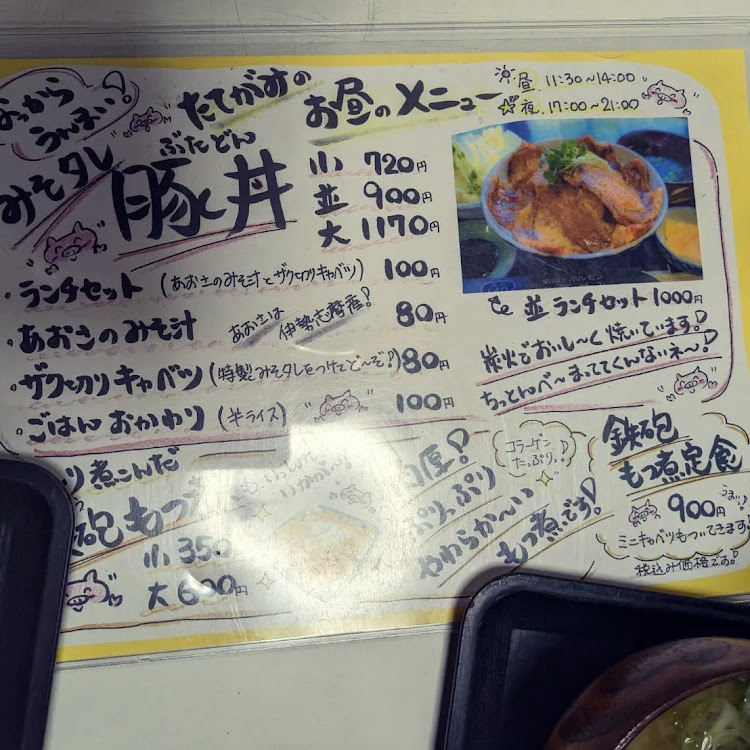 うんまい♪
みそタレ
たてがすの
ぶたどん
豚丼
お昼のメニュー
昼 11:30~14:00
夜 17:00~21:00
小 720円
並 900円
大 1170円
・ランチセット (あおさのみそ汁とザク切りキャベツ) 100円
・あおさのみそ汁 あおさは伊勢志摩産! 80円
・ザク切りキャベツ (特製みそタレをつけてど~ぞ!) 80円
・ごはんおかわり (半ライス) 100円
並ランチセット 1000円
炭火でおいし~く焼いています!
ちっとんべ~まっててくんないネ~!
煮こんだ
小 350
大 600円
いかが~
ぷりっぷり
やわらか~い
もつ煮です!
コラーゲン
たっぷり♪
鉄砲
もつ煮定食
900円
ミニキャベツもついてきます!
税込み価格です!